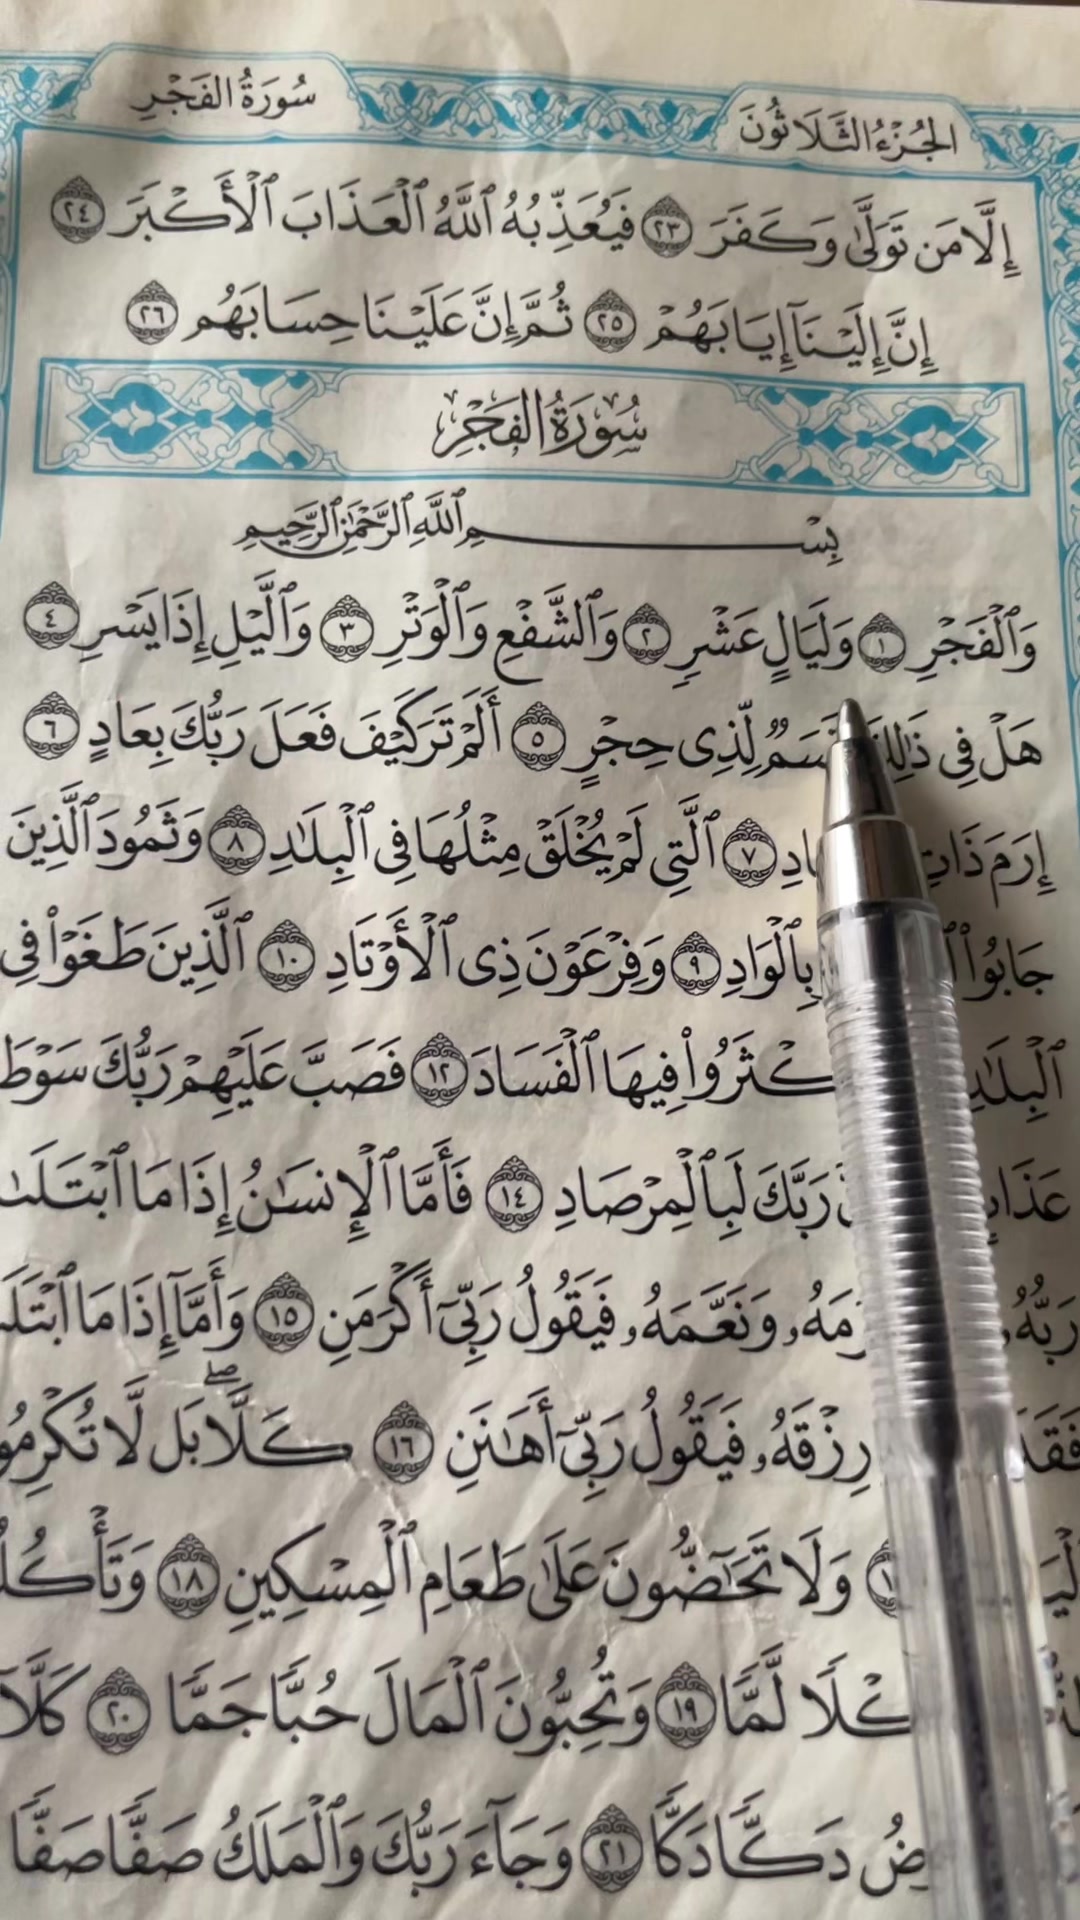 سُورَةُ الفَجْرِ
الجُزْءُ الثَّلَاثُونَ
إِلَّا مَن تَوَلَّىٰ وَكَفَرَ ٢٣ فَيُعَذِّبُهُ ٱللَّهُ ٱلْعَذَابَ ٱلْأَكْبَرَ ٢٤
إِنَّ إِلَيْنَآ إِيَابَهُمْ ٢٥ ثُمَّ إِنَّ عَلَيْنَا حِسَابَهُم ٢٦
سُورَةُ الفَجْرِ
بِسْمِ ٱللَّهِ ٱلرَّحْمَٰنِ ٱلرَّحِيمِ
وَٱلْفَجْرِ ١ وَلَيَالٍ عَشْرٍ ٢ وَٱلشَّفْعِ وَٱلْوَتْرِ ٣ وَٱلَّيْلِ إِذَا يَسْرِ ٤
هَلْ فِى ذَٰلِكَ قَسَمٌ لِّذِى حِجْرٍ ٥ أَلَمْ تَرَ كَيْفَ فَعَلَ رَبُّكَ بِعَادٍ ٦
إِرَمَ ذَاتِ ٧ ٱلَّتِى لَمْ يُخْلَقْ مِثْلُهَا فِى ٱلْبِلَٰدِ ٨ وَثَمُودَ ٱلَّذِينَ
جَابُوا۟ بِٱلْوَادِ ٩ وَفِرْعَوْنَ ذِى ٱلْأَوْتَادِ ١٠ ٱلَّذِينَ طَغَوْا۟ فِى
ٱلْبِلَٰدِ فِيهَا ٱلْفَسَادَ ١٢ فَصَبَّ عَلَيْهِمْ رَبُّكَ سَوْطَ
رَبَّكَ لَبِٱلْمِرْصَادِ ١٤ فَأَمَّا ٱلْإِنسَٰنُ إِذَا مَا ٱبْتَلَىٰهُ
رَبُّهُۥ وَنَعَّمَهُۥ فَيَقُولُ رَبِّىٓ أَكْرَمَنِ ١٥ وَأَمَّآ إِذَا مَا
رِزْقَهُۥ فَيَقُولُ رَبِّىٓ أَهَٰنَنِ ١٦ كَلَّا ۖ بَل لَّا
وَلَا تَحَٰٓضُّونَ عَلَىٰ طَعَامِ ٱلْمِسْكِينِ ١٨
لَّمًّا ١٩ وَتُحِبُّونَ ٱلْمَالَ حُبًّا جَمًّا ٢٠ كَلَّآ
دَكًّا دَكًّا ٢١ وَجَآءَ رَبُّكَ وَٱلْمَلَكُ صَفًّا صَفًّا